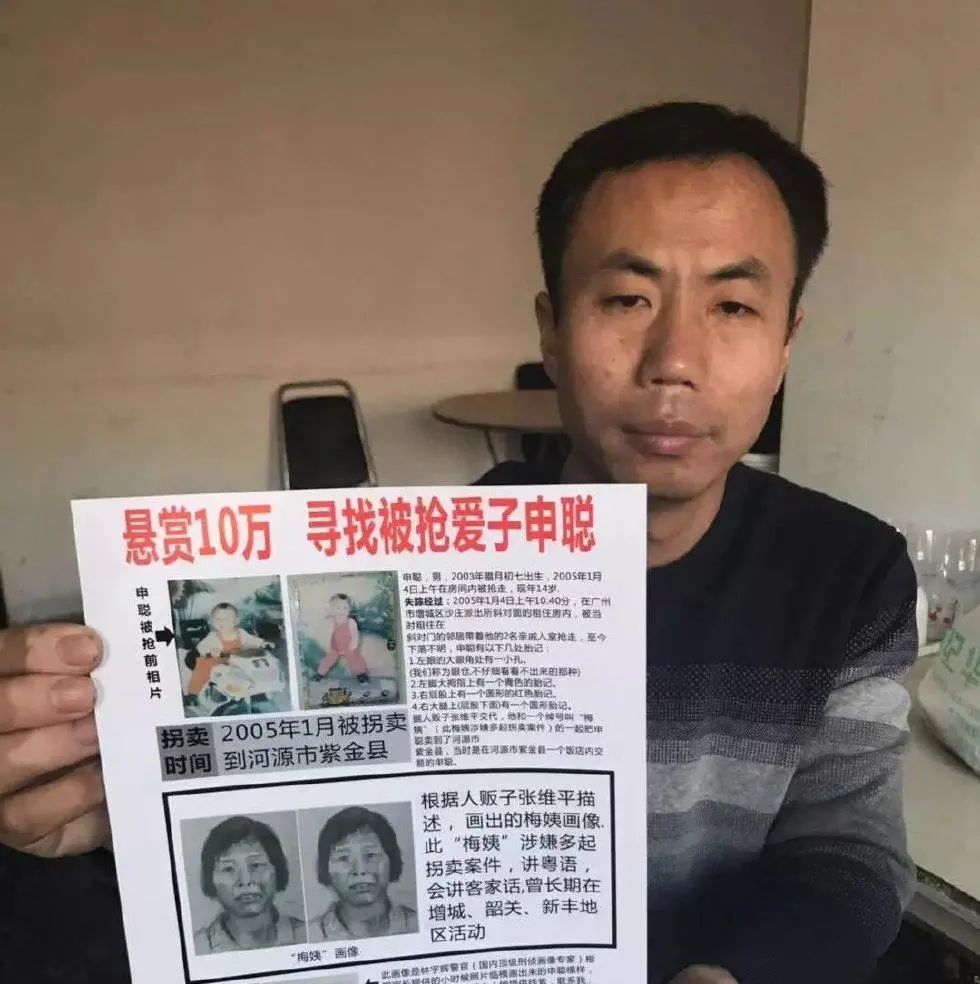 悬赏10万 寻找被抢爱子申聪
申聪被抢前相片
申聪，男，2003年腊月初七出生，2005年1月
4日上午在房间内被抢走，现年14岁.
失踪经过：2005年1月4日上午10:40分，在广州
市增城区沙庄派出所斜对面的租住房内，被当
时租住在
斜对门的邻居带着他的2名亲戚入室抢走，至今
下落不明，申聪有以下几处胎记：
1.左眼的大眼角处有一小孔。
(我们称为眼仓,不仔细看看不出来的那种)
2.左脚大拇指上有一个青色的胎记。
3.右屁股上有一个圆形的红色胎记。
4.右大腿上(屁股下面)有一个圆形胎记。
据人贩子张维平交代，他和一个绰号叫“梅
姨”（此梅姨涉嫌多起拐卖案件）的一起把申
聪卖到了河源市
紫金县，当时是在河源市紫金县一个饭店内交
易的申聪。
拐卖
时间
2005年1月被拐卖
到河源市紫金县
根据人贩子张维平描
述，画出的梅姨画像.
此“梅姨”涉嫌多起
拐卖案件，讲粤语，
会讲客家话,曾长期在
增城、韶关、新丰地
区活动
“梅姨”画像
此画像是林宇辉警官（国内顶级刑侦画像专家）根